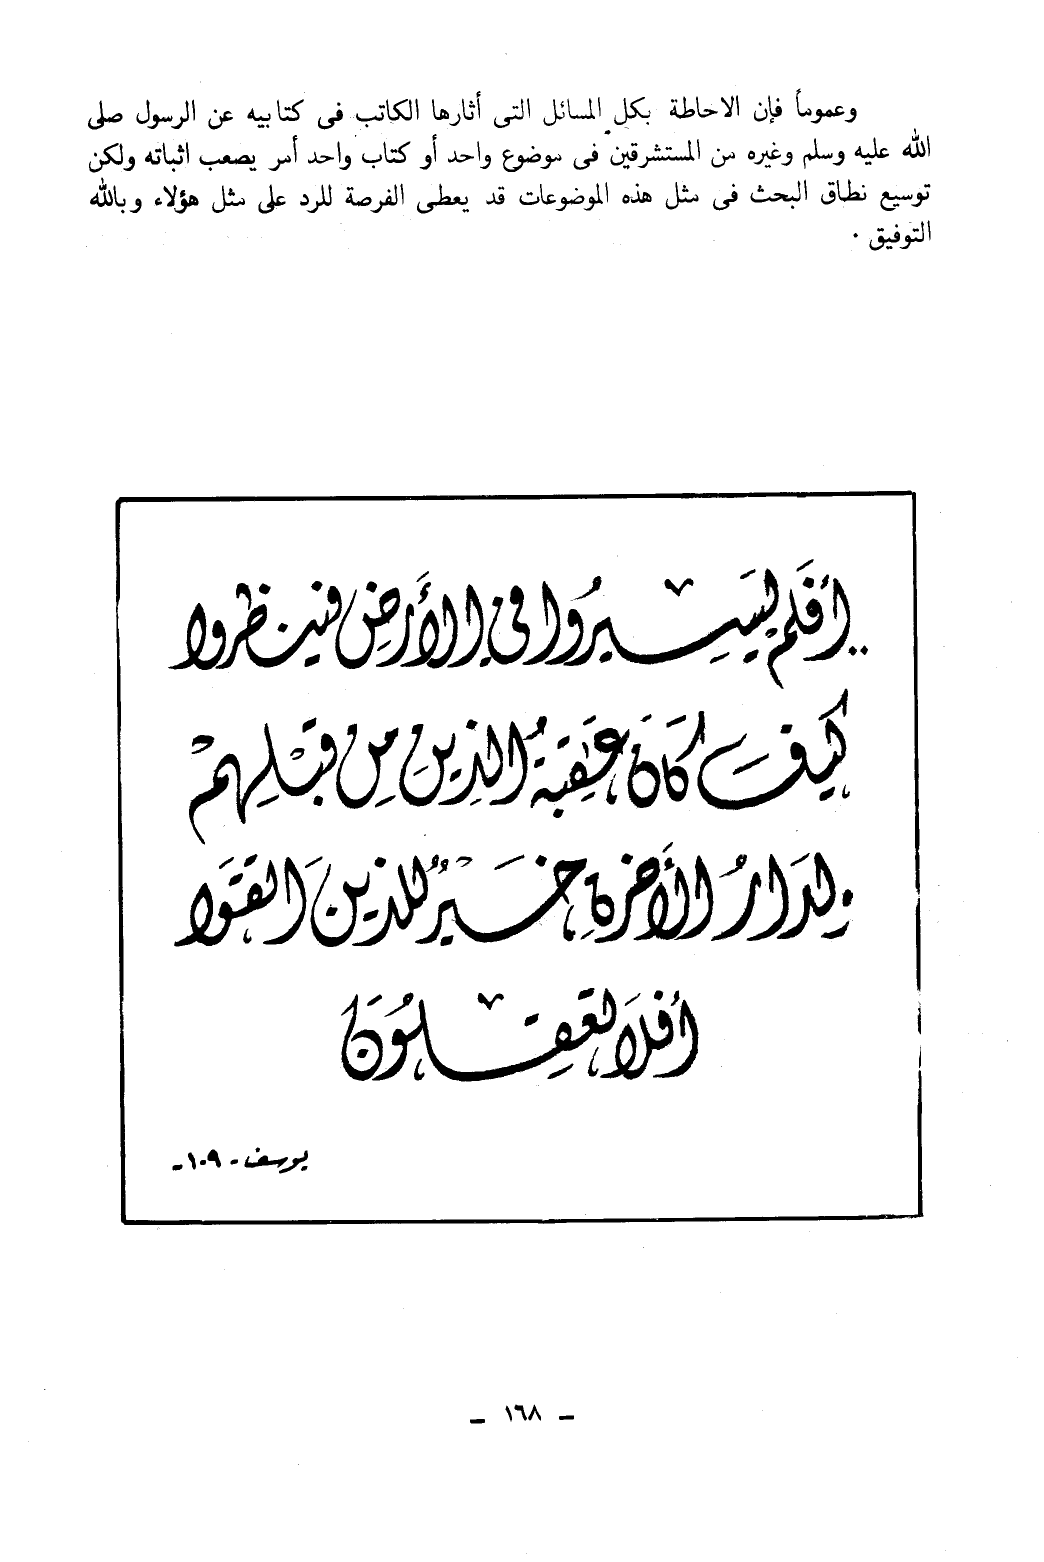 وعموماً فإن الاحاطة بكل المسائل التى أثارها الكاتب فى كتابيه عن الرسول صلى
الله عليه وسلم وغيره من المستشرقين فى موضوع واحد أو كتاب واحد أمر يصعب اثباته ولكن
توسيع نطاق البحث فى مثل هذه الموضوعات قد يعطى الفرصة للرد على مثل هؤلاء وبالله
التوفيق .
.. أفلم يَسِيرُوا في الأَرضِ فينظروا
كَيفَ كَانَ عَٰقِبَةُ الذِينَ مِن قَبْلِهِمْ
ولَدَارُ الأَخرة خَيْرٌ للذين اتقَوا
أَفَلَا تَعقِلُونَ
يوسف - ١٠٩ -
- ١٦٨ -